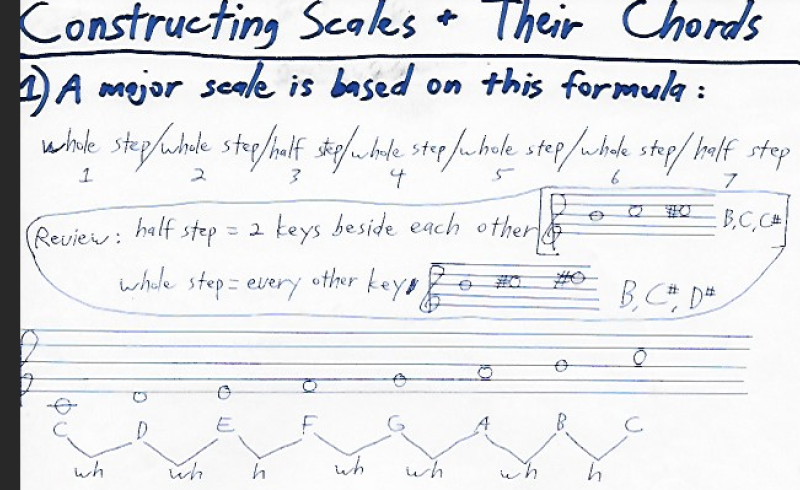 Constructing Scales + Their Chords
1) A major scale is based on this formula:
whole step/whole step/half step/whole step/whole step/whole step/half step
1 2 3 4 5 6 7
Review: half step = 2 keys beside each other B, C, C#
whole step = every other key B, C#, D#
C D E F G A B C
wh wh h wh wh wh h